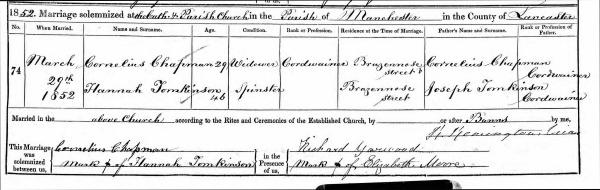 1852. Marriage solemnized at the Cath. & Parish Church in the Parish of Manchester in the County of Lancaster
No. When Married. Name and Surname. Age. Condition. Rank or Profession. Residence at the Time of Marriage. Father's Name and Surname. Rank or Profession of Father.
74 March 29th 1852 Cornelius Chapman 29 Widower Cordwainer Brazennose street Cornelius Chapman Cordwainer
Hannah Tomkinson 46 Spinster Brazennose street Joseph Tomkinson Cordwainer
Married in the above Church according to the Rites and Ceremonies of the Established Church, by or after Banns by me,
This Marriage was solemnized between us, Cornelius Chapman in the Presence of us, Richard Yarwood
Mark + of Hannah Tomkinson Mark + of Elizabeth Moore